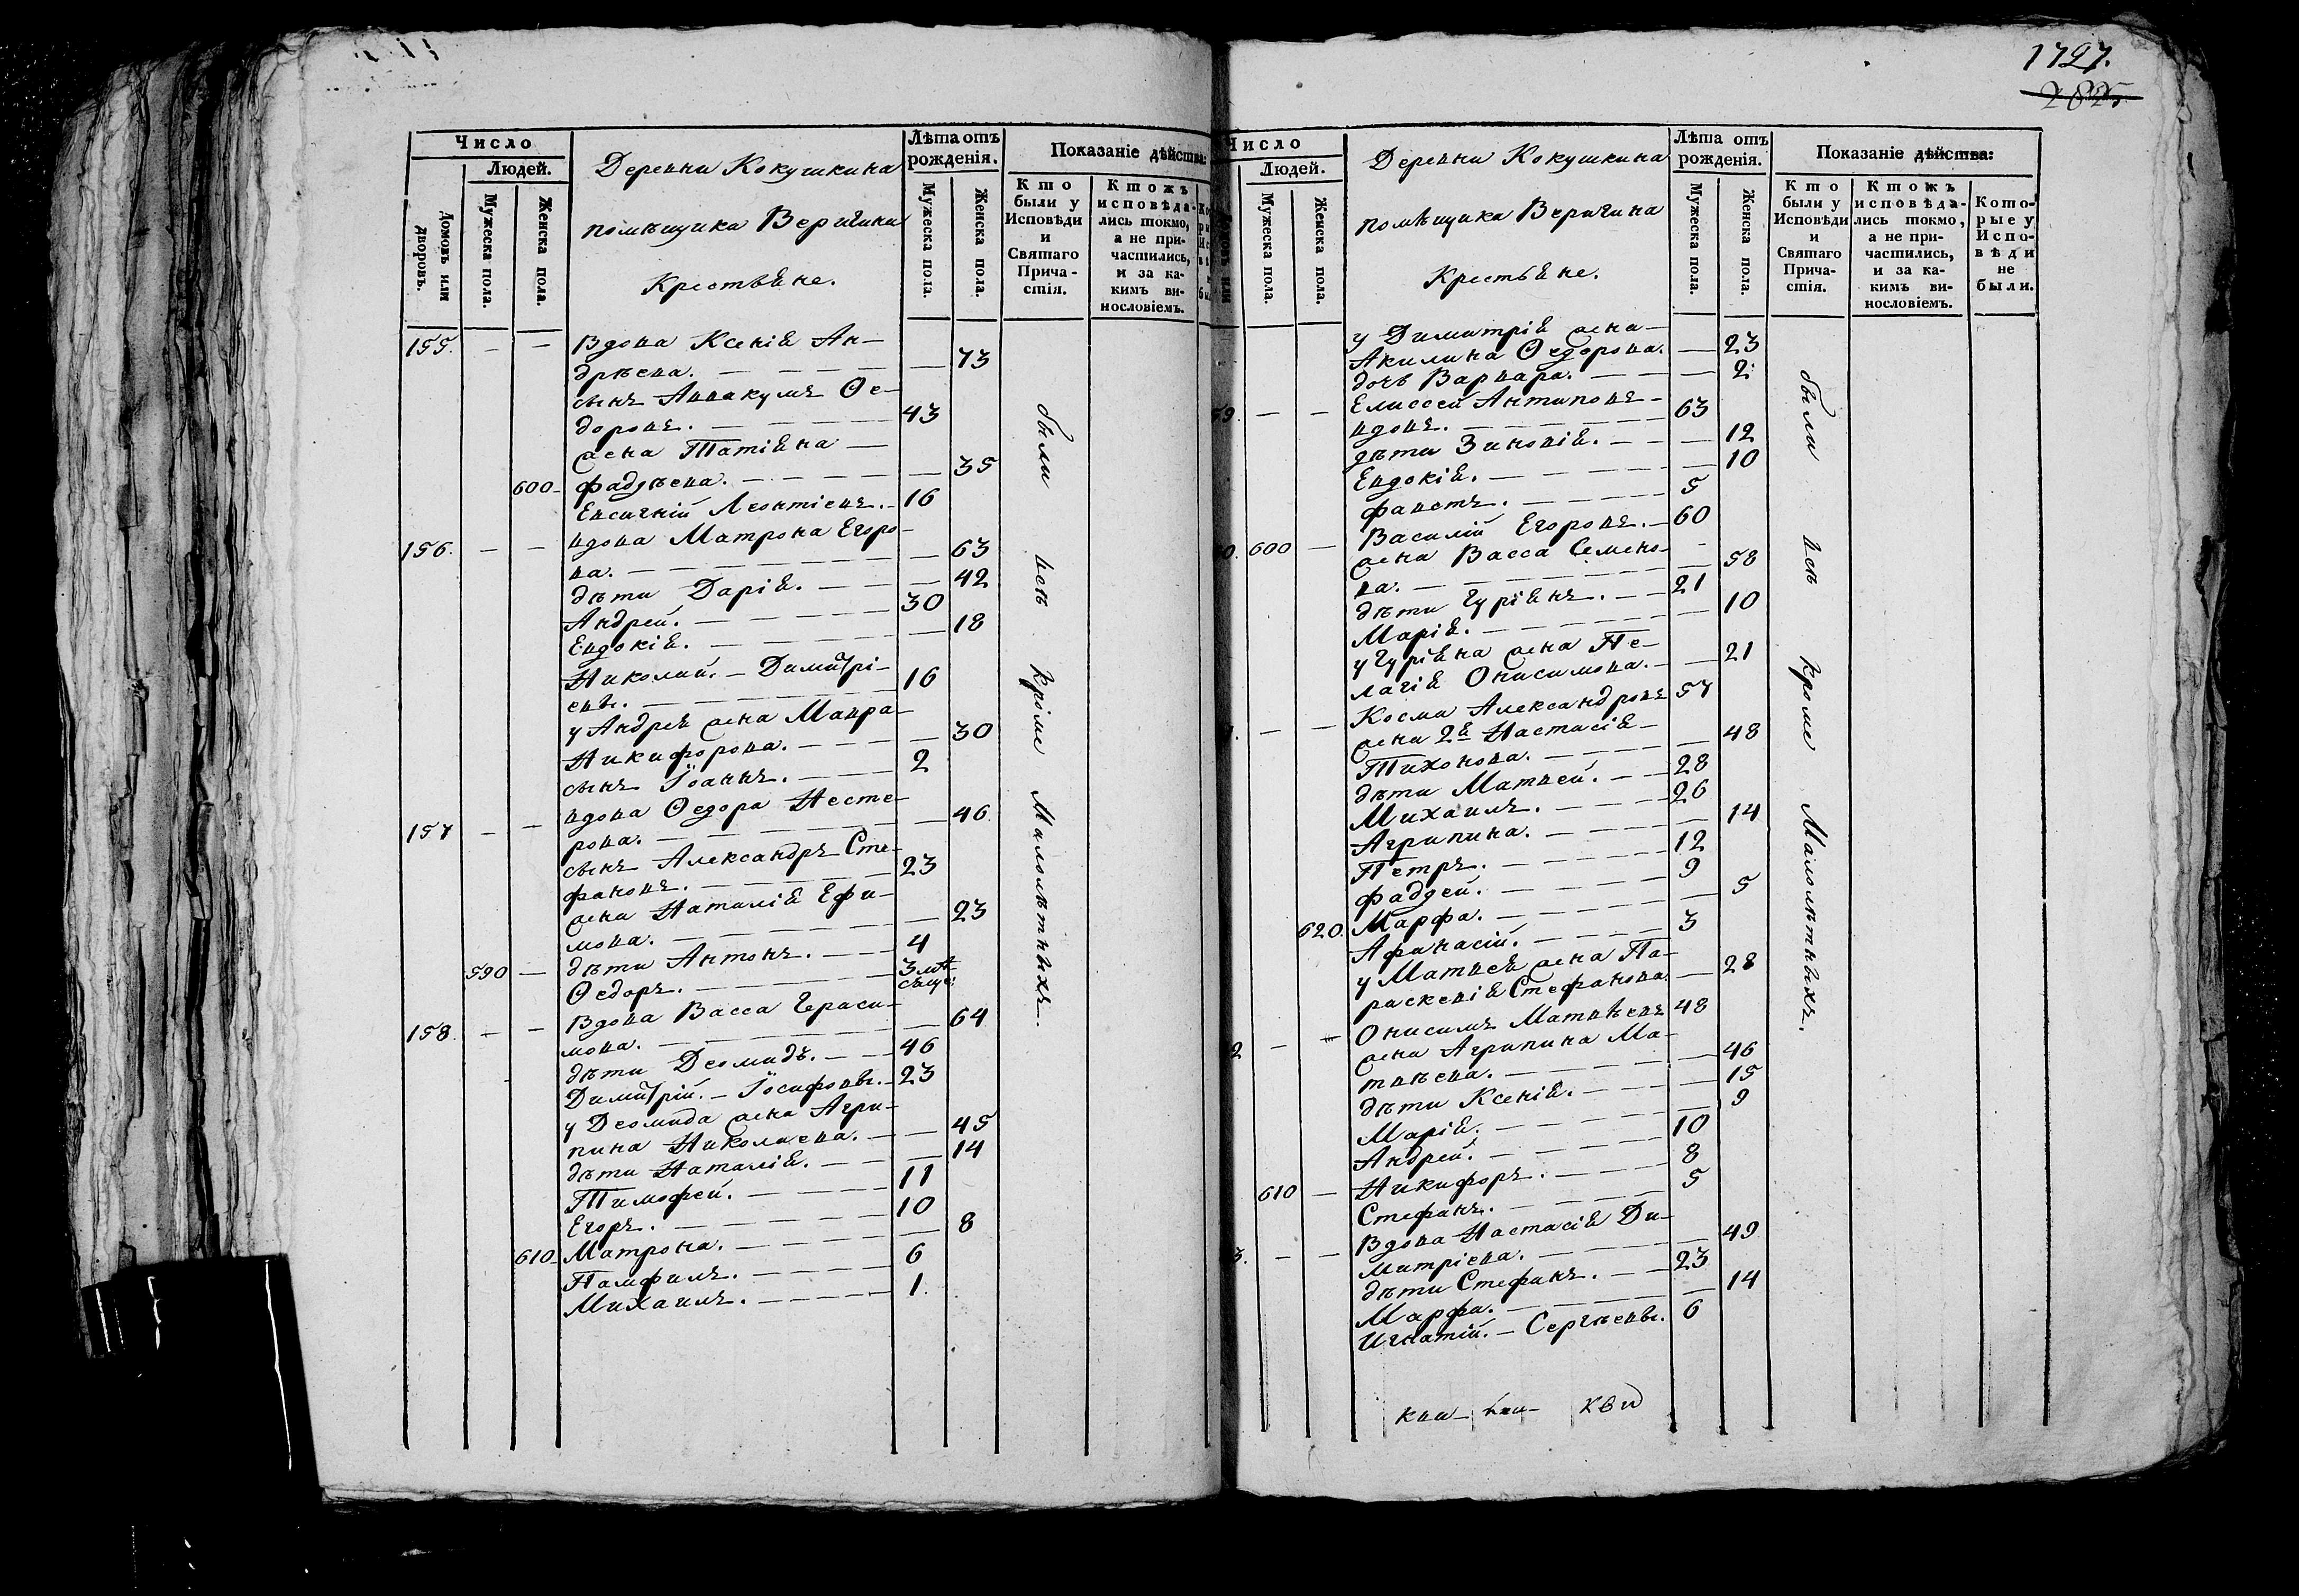 1797.
2825
Число
Людей.
Домовъ или дворовъ.
Мужеска пола.
Женска пола.
Деревни Кокушкина
помѣщика Веригина
Крестьяне.
Лѣта отъ рожденія.
Мужеска пола.
Женска пола.
Показаніе дѣйства:
Кто были у Исповѣди и Святаго Причастія.
Ктожъ исповѣдались токмо, а не причастились, и за какимъ винословіемъ.
155. — — Вдова Ксенія Ан—
дрѣева. — 73
сынъ Аввакумъ Ѳе—
доровъ. — 43
жена Татіяна —
600 — фадѣева. — 35
Евсигній Леонтіевъ. — 16
156. — — вдова Матрона Егоро—
ва. — 63
дѣти Дарія. — 42
Андрей. — 30
Евдокія. — 18
Николай. — Димитрі—
евы. — 16
у Андрея жена Мавра—
Никифорова. — 30
сынъ Іоаннъ. — 2
157 — — вдова Ѳедора Несте—
рова. — 46
сынъ Александръ Сте—
фановъ. — 23
жена Наталія Ефи—
мова. — 23
590 — дѣти Антонъ. — 4
Ѳедоръ. — 3 мѣ—
сяце:
158. — — Вдова Васса Гераси—
мова. — 64
дѣти Деомидъ. — 46
Димитрій. — Іосифовы. — 23
у Деомида жена Агри—
пина Николаева. — 45
дѣти Наталія. — 14
Тимофей. — 11
Егоръ. — 10
610 — Матрона. — 8
Памфилъ. — 6
Михаилъ. — 1.
были всѣ кроме Малолѣтныхъ.
Число
Людей.
Мужеска пола.
Женска пола.
Деревни Кокушкина
помѣщика Веригина
Крестьяне.
Лѣта отъ рожденія.
Мужеска пола.
Женска пола.
Показаніе дѣйства:
Кто были у Исповѣди и Святаго Причастія.
Ктожъ исповѣдались токмо, а не причастились, и за какимъ винословіемъ.
Которые у Исповѣди не были.
у Димитрія жена—
Акилина Ѳедорова. — 23
дочь Варвара. — 2
59. — — Елиссей Антиповъ—
вдовъ. — 63
дѣти Зиновія. — 12
Евдокія. — 10
фавстъ. — 5
0. 600 — Василій Егоровъ. — 60
жена Васса Семено—
ва. — 58
дѣти Гуріянъ. — 21
Марія. — 10
у Гуріяна жена Пе—
лагія Онисимова. — 21
— — Косма Александровъ 57
жена 2я Настасія—
Тихонова. — 48
дѣти Матвей. — 28
Михаилъ. — 26
Агрипина. — 14
Петръ. — 12
фаддей. — 9
620. Марфа. — 5
Афанасій. — 3
у Матвея жена Па—
раскевія Стефанова. — 28
2 — — Онисимъ Матвѣевъ 48
жена Агрипина Ма—
твѣева. — 46
дѣти Ксенія. — 15
Марія. — 9
Андрей. — 10
610 — Никифоръ. — 8
Стефанъ. — 5
3. — — Вдова Настасія Ди—
митріева. — 49
дѣти Стефанъ. — 23
Марфа. — 14
Игнатій. — Сергѣевы. 6
были всѣ кроме Малолѣтныхъ.